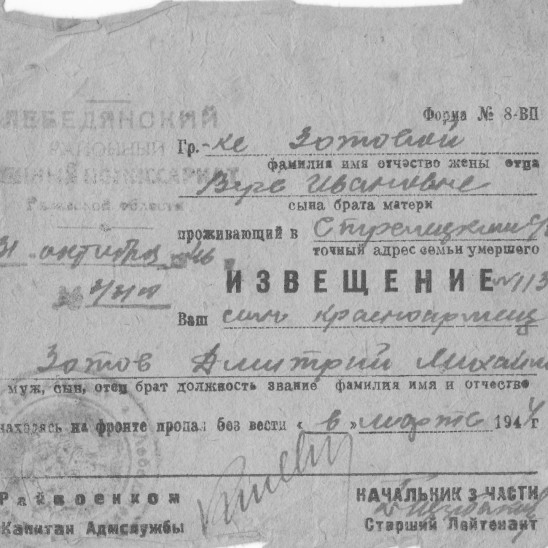 Форма № 8-ВП
ЛЕБЕДЯНСКИЙ
РАЙОННЫЙ
ВОЕННЫЙ КОМИССАРИАТ
Рязанской области
Гр.-ке Зотовой
фамилия имя отчество жены отца
Вере Ивановне
сына брата матери
проживающий в Стрелецкий с/
точный адрес семьи умершего
31 октября 1946
№
ИЗВЕЩЕНИЕ №113
Ваш сын красноармеец
Зотов Дмитрий Михайл
муж, сын, отец брат должность звание фамилия имя и отчество
находясь на фронте пропал без вести « в » марте 1944 г
Райвоенком
Капитан Адмслужбы
НАЧАЛЬНИК 3 ЧАСТИ
Старший Лейтенант